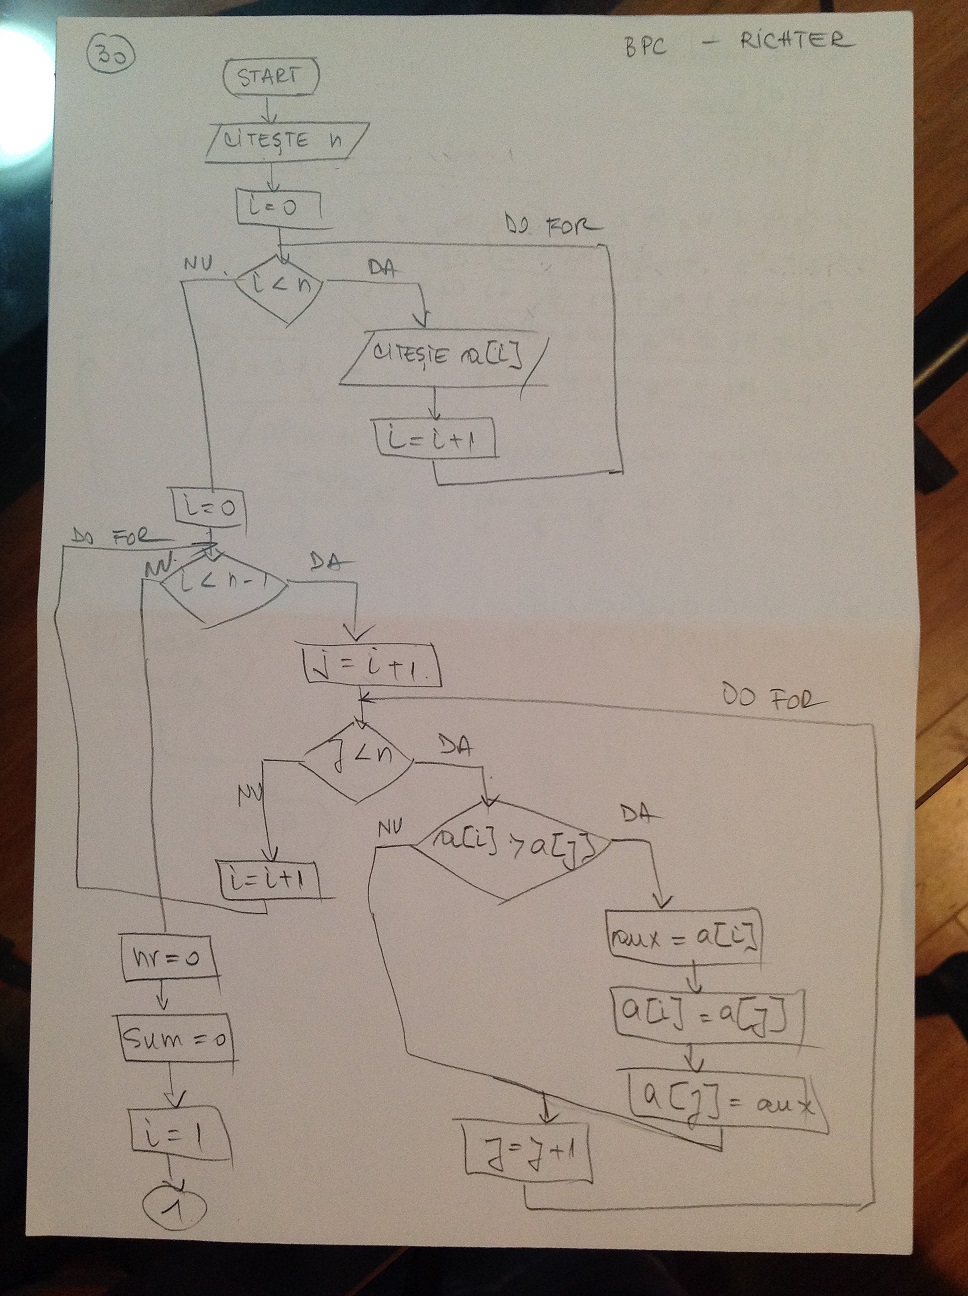 30
BPC - RICHTER
START
CITEȘTE n
i=0
DO FOR
NU.
i < n
DA
CITEȘTE a[i]
i = i+1
i=0
DO FOR
NU.
i < n-1
DA
j = i+1.
DO FOR
j < n
DA
NU
NU
a[i] > a[j]
DA
i=i+1
aux = a[i]
nr=0
a[i] = a[j]
Sum=0
a[j] = aux
i=1
j=j+1
1